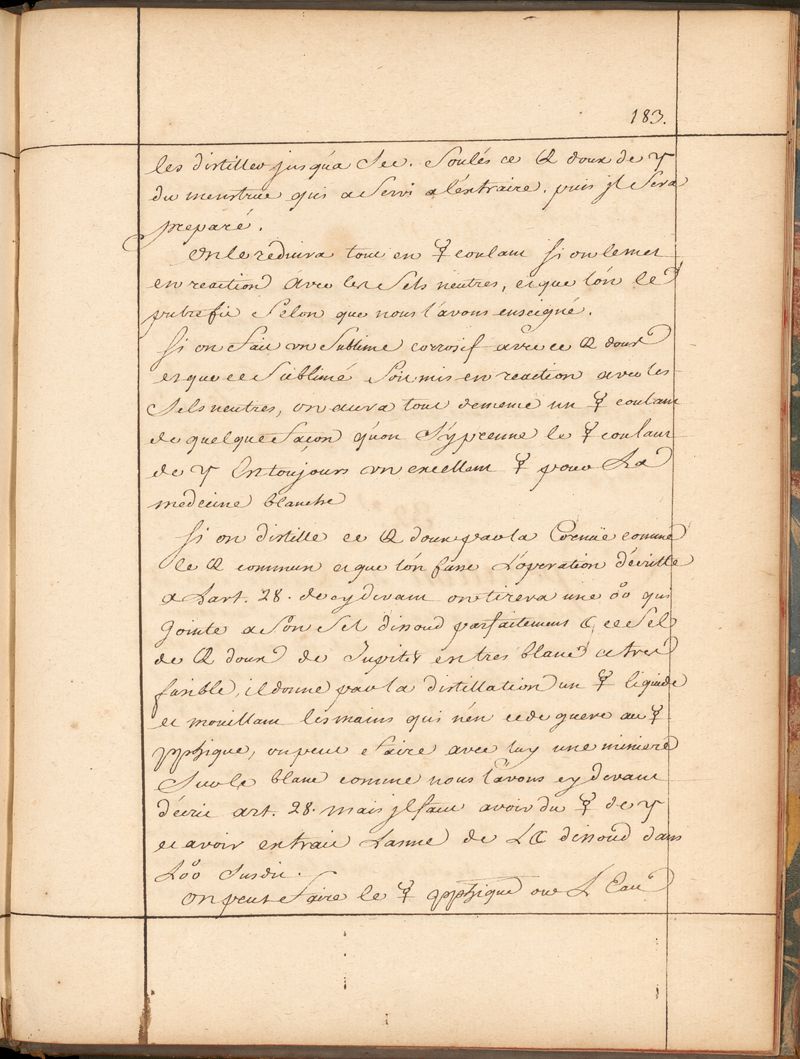 183.
les distiller jusqu'a Sec. Soulés ce 🜔 doux de ♃
du menstrue qui a Servi a l'extraire, puis jl Sera
preparé.
On le reduira tout en ☿ coulant Si on le met
en reaction avec les Sels neutres, et que l'on le
putrefie Selon que nous l'avons enseigné.
Si on fait un Sublimé corrosif avec ce 🜔 doux
et que ce Sublimé Soit mis en reaction avec les
Sels neutres, on aura tout de meme un ☿ coulant
de quelque façon qu'on S'y prenne le ☿ coulant
de ♃ Est toujours un excellent ☿ pour La
medecine blanche
Si on distille ce 🜔 doux par la Cornuë comme
le 🜔 commun et que l'on fasse L'operation décritte
a Lart. 28. de cy devant on tirera une oo qui
Jointe a Son Sel dissoud parfaitement ☾, ce Sel
de 🜔 doux de Jupiter en tres blanc et tres
fusible, il donne par la distillation un ☿ liquide
et mouillant les mains qui n'en cede guere au ☿
pphique, on peut Faire avec luy une miniere
Sur le blanc comme nous l'avons cy devant
décrit art. 28. mais jl faut avoir du ☿ de ♃
et avoir extrait Lame de L☾ dissoud dans
Loo Susdit.
On peut Faire le ☿ pphique ou L'Eau